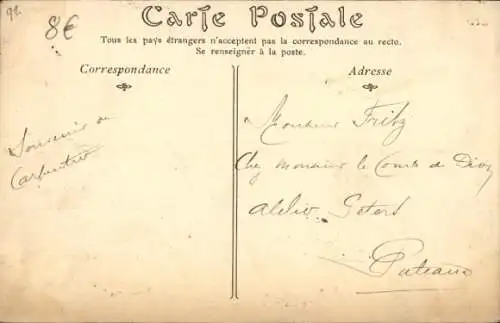 92
8€
Carte Postale
Tous les pays étrangers n'acceptent pas la correspondance au recto.
Se renseigner à la poste.
Correspondance
Souvenir du
Carpentier
Adresse
Monsieur Fritz
Chez Monsieur le Comte de Dion
Puteaux